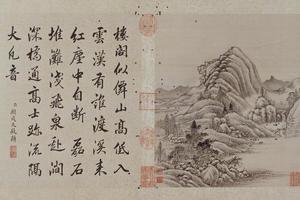 樓閣似僊山高低入
雲漢有誰渡溪來
紅塵中自斷 磊石
堆灘淺飛泉赴澗
深橋通高士跡流隔
大凡音